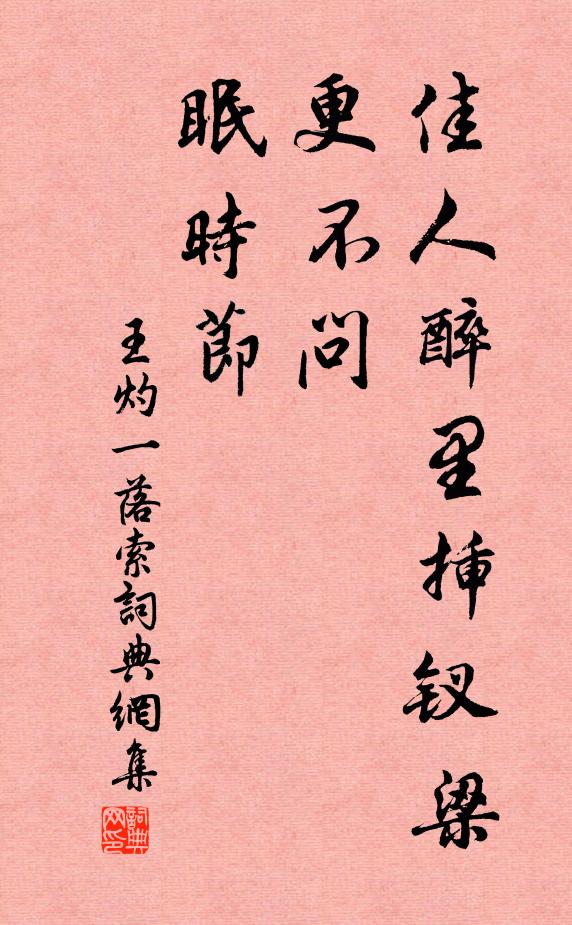 佳人醉里挿钗梁
更不问
眠時節
王灼一落索詞典網集
詞典网印